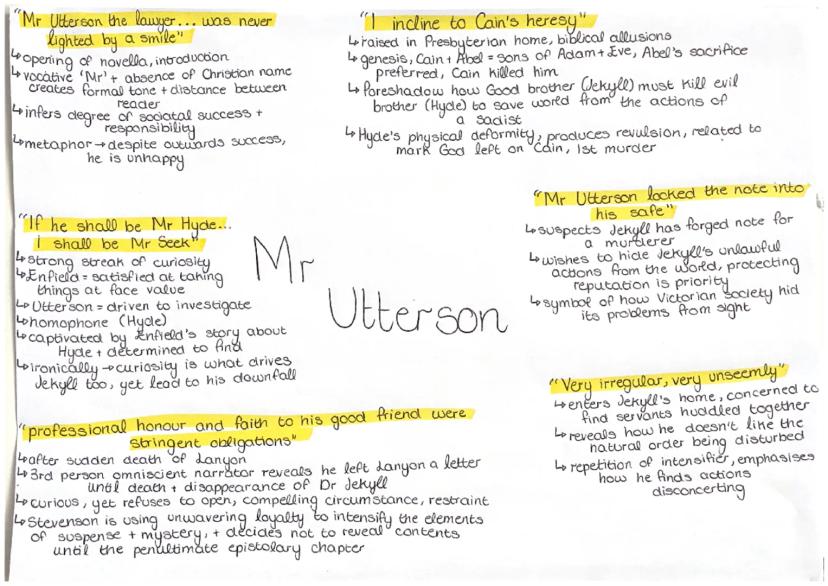 "Mr Utterson the lawyer... was never
lighted by a smile"
↳opening of novella, introduction
↳vocative 'Mr' + absence of Christian name
creates formal tone + distance between
reader
↳infers degree of societal success +
responsibility
↳metaphor → despite outwards success,
he is unhappy
"I incline to Cain's heresy"
↳raised in Presbyterian home, biblical allusions
↳genesis, Cain + Abel = sons of Adam + Eve, Abel's sacrifice
preferred, Cain killed him
↳Foreshadow how Good brother (Jekyll) must kill evil
brother (Hyde) to save world from the actions of
a sadist
↳Hyde's physical deformity, produces revulsion, related to
mark God left on Cain, 1st murder
"If he shall be Mr Hyde...
i shall be Mr Seek"
↳strong streak of curiosity
↳Enfield = satisfied at taking
things at face value
↳Utterson = driven to investigate
↳homophone (Hyde)
↳captivated by Enfield's story about
Hyde + determined to find
↳ironically → curiosity is what drives
Jekyll too, yet lead to his downfall
Mr
Utterson
"Mr Utterson locked the note into
his safe"
↳suspects Jekyll has forged note for
a murderer
↳wishes to hide Jekyll's unlawful
actions from the world, protecting
reputation is priority
↳symbol of how Victorian society hid
its problems from sight
"Very irregular, very unseemly"
↳enters Jekyll's home, concerned to
find servants huddled together
↳reveals how he doesn't like the
natural order being disturbed
↳repetition of intensifier, emphasises
how he finds actions
disconcerting
"professional honour and faith to his good friend were
stringent obligations"
↳after sudden death of Lanyon
↳3rd person omniscient narrator reveals he left Lanyon a letter
until death + disappearance of Dr Jekyll
↳curious, yet refuses to open, compelling circumstance, restraint
↳Stevenson is using unwavering loyalty to intensify the elements
of suspense + mystery, + decides not to reveal contents
until the penultimate epistolary chapter